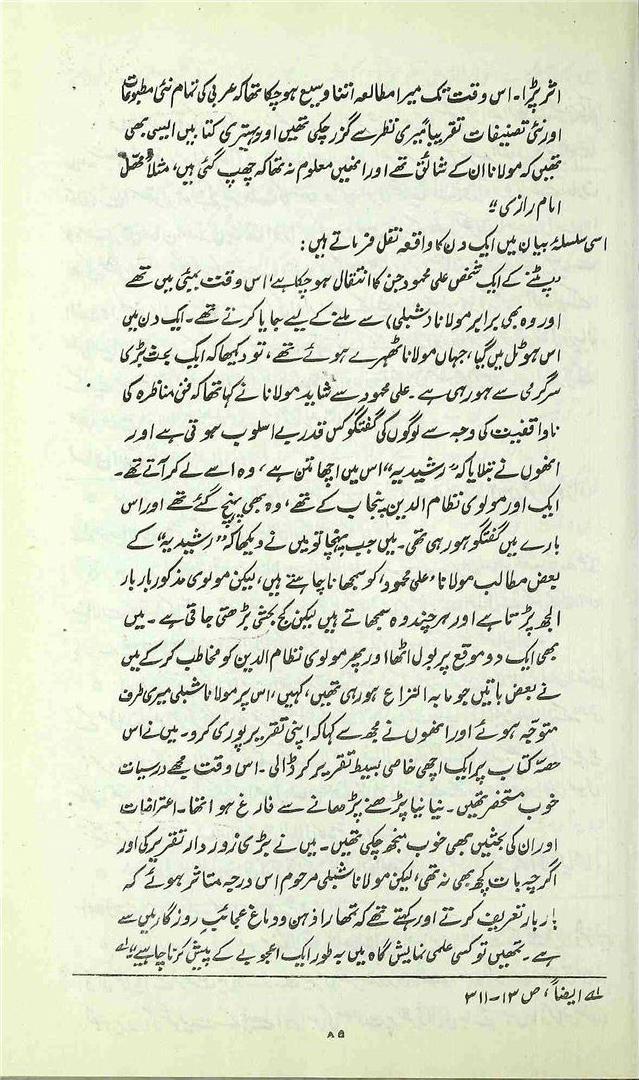 اثر پڑا۔ اس وقت تک میرا مطالعہ اتنا وسیع ہو چکا تھا کہ عربی کی تمام نئی مطبوعات
اور نئی تصنیفات تقریباً میری نظر سے گزر چکی تھیں اور بہتیری کتابیں ایسی بھی
تھیں کہ مولانا ان کے شائق تھے اور انھیں معلوم نہ تھا کہ چھپ گئی ہیں، مثلاً محصّل
امام رازی"
اسی سلسلۂ بیان میں ایک دن کا واقعہ نقل فرماتے ہیں:
"پٹنے کے ایک شخص علی محمود جن کا انتقال ہو چکا ہے اس وقت بمبئی میں تھے
اور وہ بھی برابر مولانا (شبلی) سے ملنے کے لیے جایا کرتے تھے۔ ایک دن میں
اس ہوٹل میں گیا، جہاں مولانا ٹھہرے ہوئے تھے، تو دیکھا کہ ایک بحث بڑی
سرگرمی سے ہو رہی ہے۔ علی محمود سے شاید مولانا نے کہا تھا کہ فنِ مناظرہ کی
ناواقفیت کی وجہ سے لوگوں کی گفتگو کس قدر بے اسلوب ہوتی ہے اور
انھوں نے بتلایا کہ "رشیدیہ" اس میں اچھا متن ہے، وہ اسے لے کر آتے تھے۔
ایک اور مولوی نظام الدین پنجاب کے تھے، وہ بھی پہنچ گئے تھے اور اس
بارے میں گفتگو ہو رہی تھی۔ میں جب پہنچا تو میں نے دیکھا کہ "رشیدیہ" کے
بعض مطالب مولانا، علی محمود، کو سمجھانا چاہتے ہیں، لیکن مولوی مذکور بار بار
الجھ پڑتا ہے اور ہر چند وہ سمجھاتے ہیں لیکن کج بحثی بڑھتی جاتی ہے۔ میں
بھی ایک دو موقع پر بول اٹھا اور پھر مولوی نظام الدین کو مخاطب کر کے میں
نے بعض باتیں جو مابہ النزاع ہو رہی تھیں، کہیں، اس پر مولانا شبلی میری طرف
متوجّہ ہوئے اور انھوں نے مجھ سے کہا کہ اپنی تقریر پوری کرو۔ میں نے اس
حصّہ کتاب پر ایک اچھی خاصی بسیط تقریر کر ڈالی۔ اس وقت مجھے درسیات
خوب مستحضر تھیں۔ نیا نیا پڑھنے پڑھانے سے فارغ ہوا تھا۔ اعتراضات
اور ان کی بحثیں بھی خوب منجھ چکی تھیں۔ میں نے بڑی زور دار تقریر کی اور
اگرچہ بات کچھ بھی نہ تھی، لیکن مولانا شبلی مرحوم اس درجہ متاثر ہوئے کہ
بار بار تعریف کرتے اور کہتے تھے کہ تمھارا ذہن و دماغ عجائبِ روزگار میں سے
ہے۔ تمھیں تو کسی علمی نمایش گاہ میں بہ طور ایک اعجوبے کے پیش کرنا چاہیے" ۱ے
۱ے ایضاً، ص ۱۳-۳۱۱
۸۵